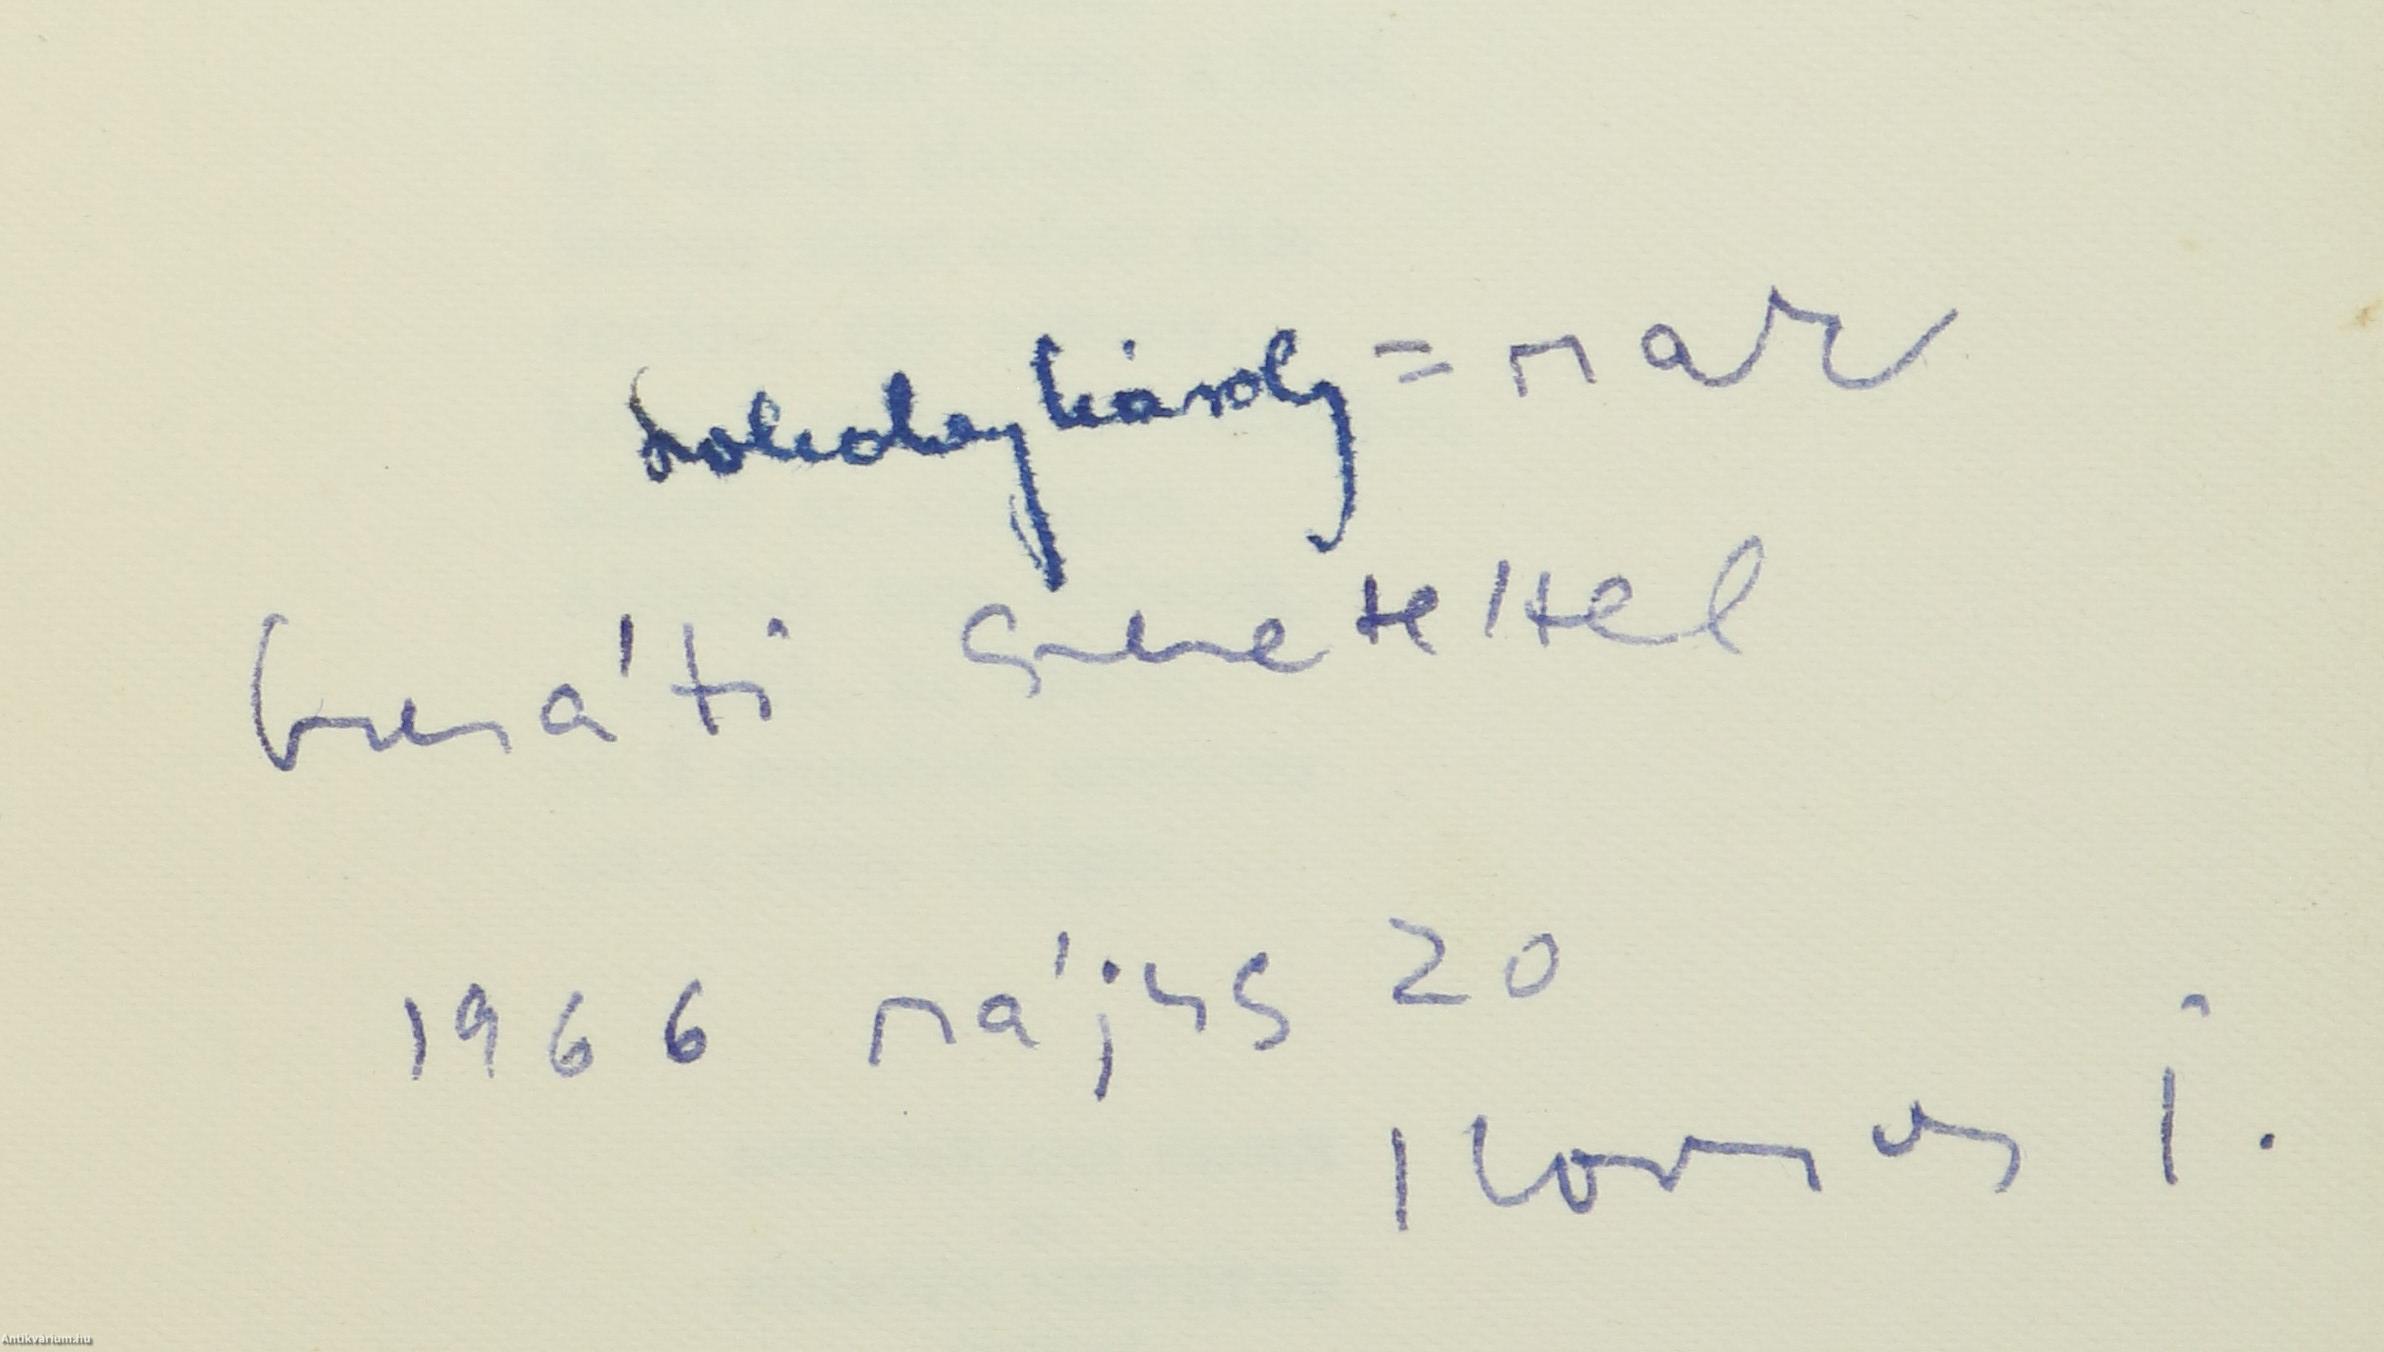 Szokolay Károly=nak
baráti szeretettel
1966 május 20
Kormos I.
Antikvárium.hu